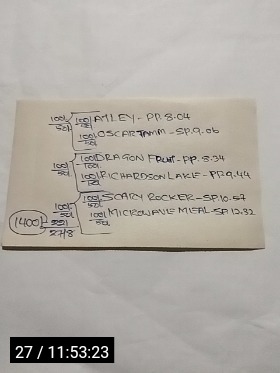 100/50 100/50 AYLEY - PP. 8.04
100/50 OSCAR TAMM - SP. 9.06
100/50 100/100 DRAGON FRUIT - PP. 8.34
100/50 RICHARDSON LAKE - PP. 9.44
100/50 SCARY ROCKER - SP. 10.57
100/50 MICROWAVE MEAL - SP. 12.32
1400
27/8
27 / 11:53:23